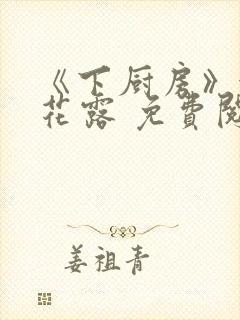 《下厨房》
花露 免費閱
姜祖青